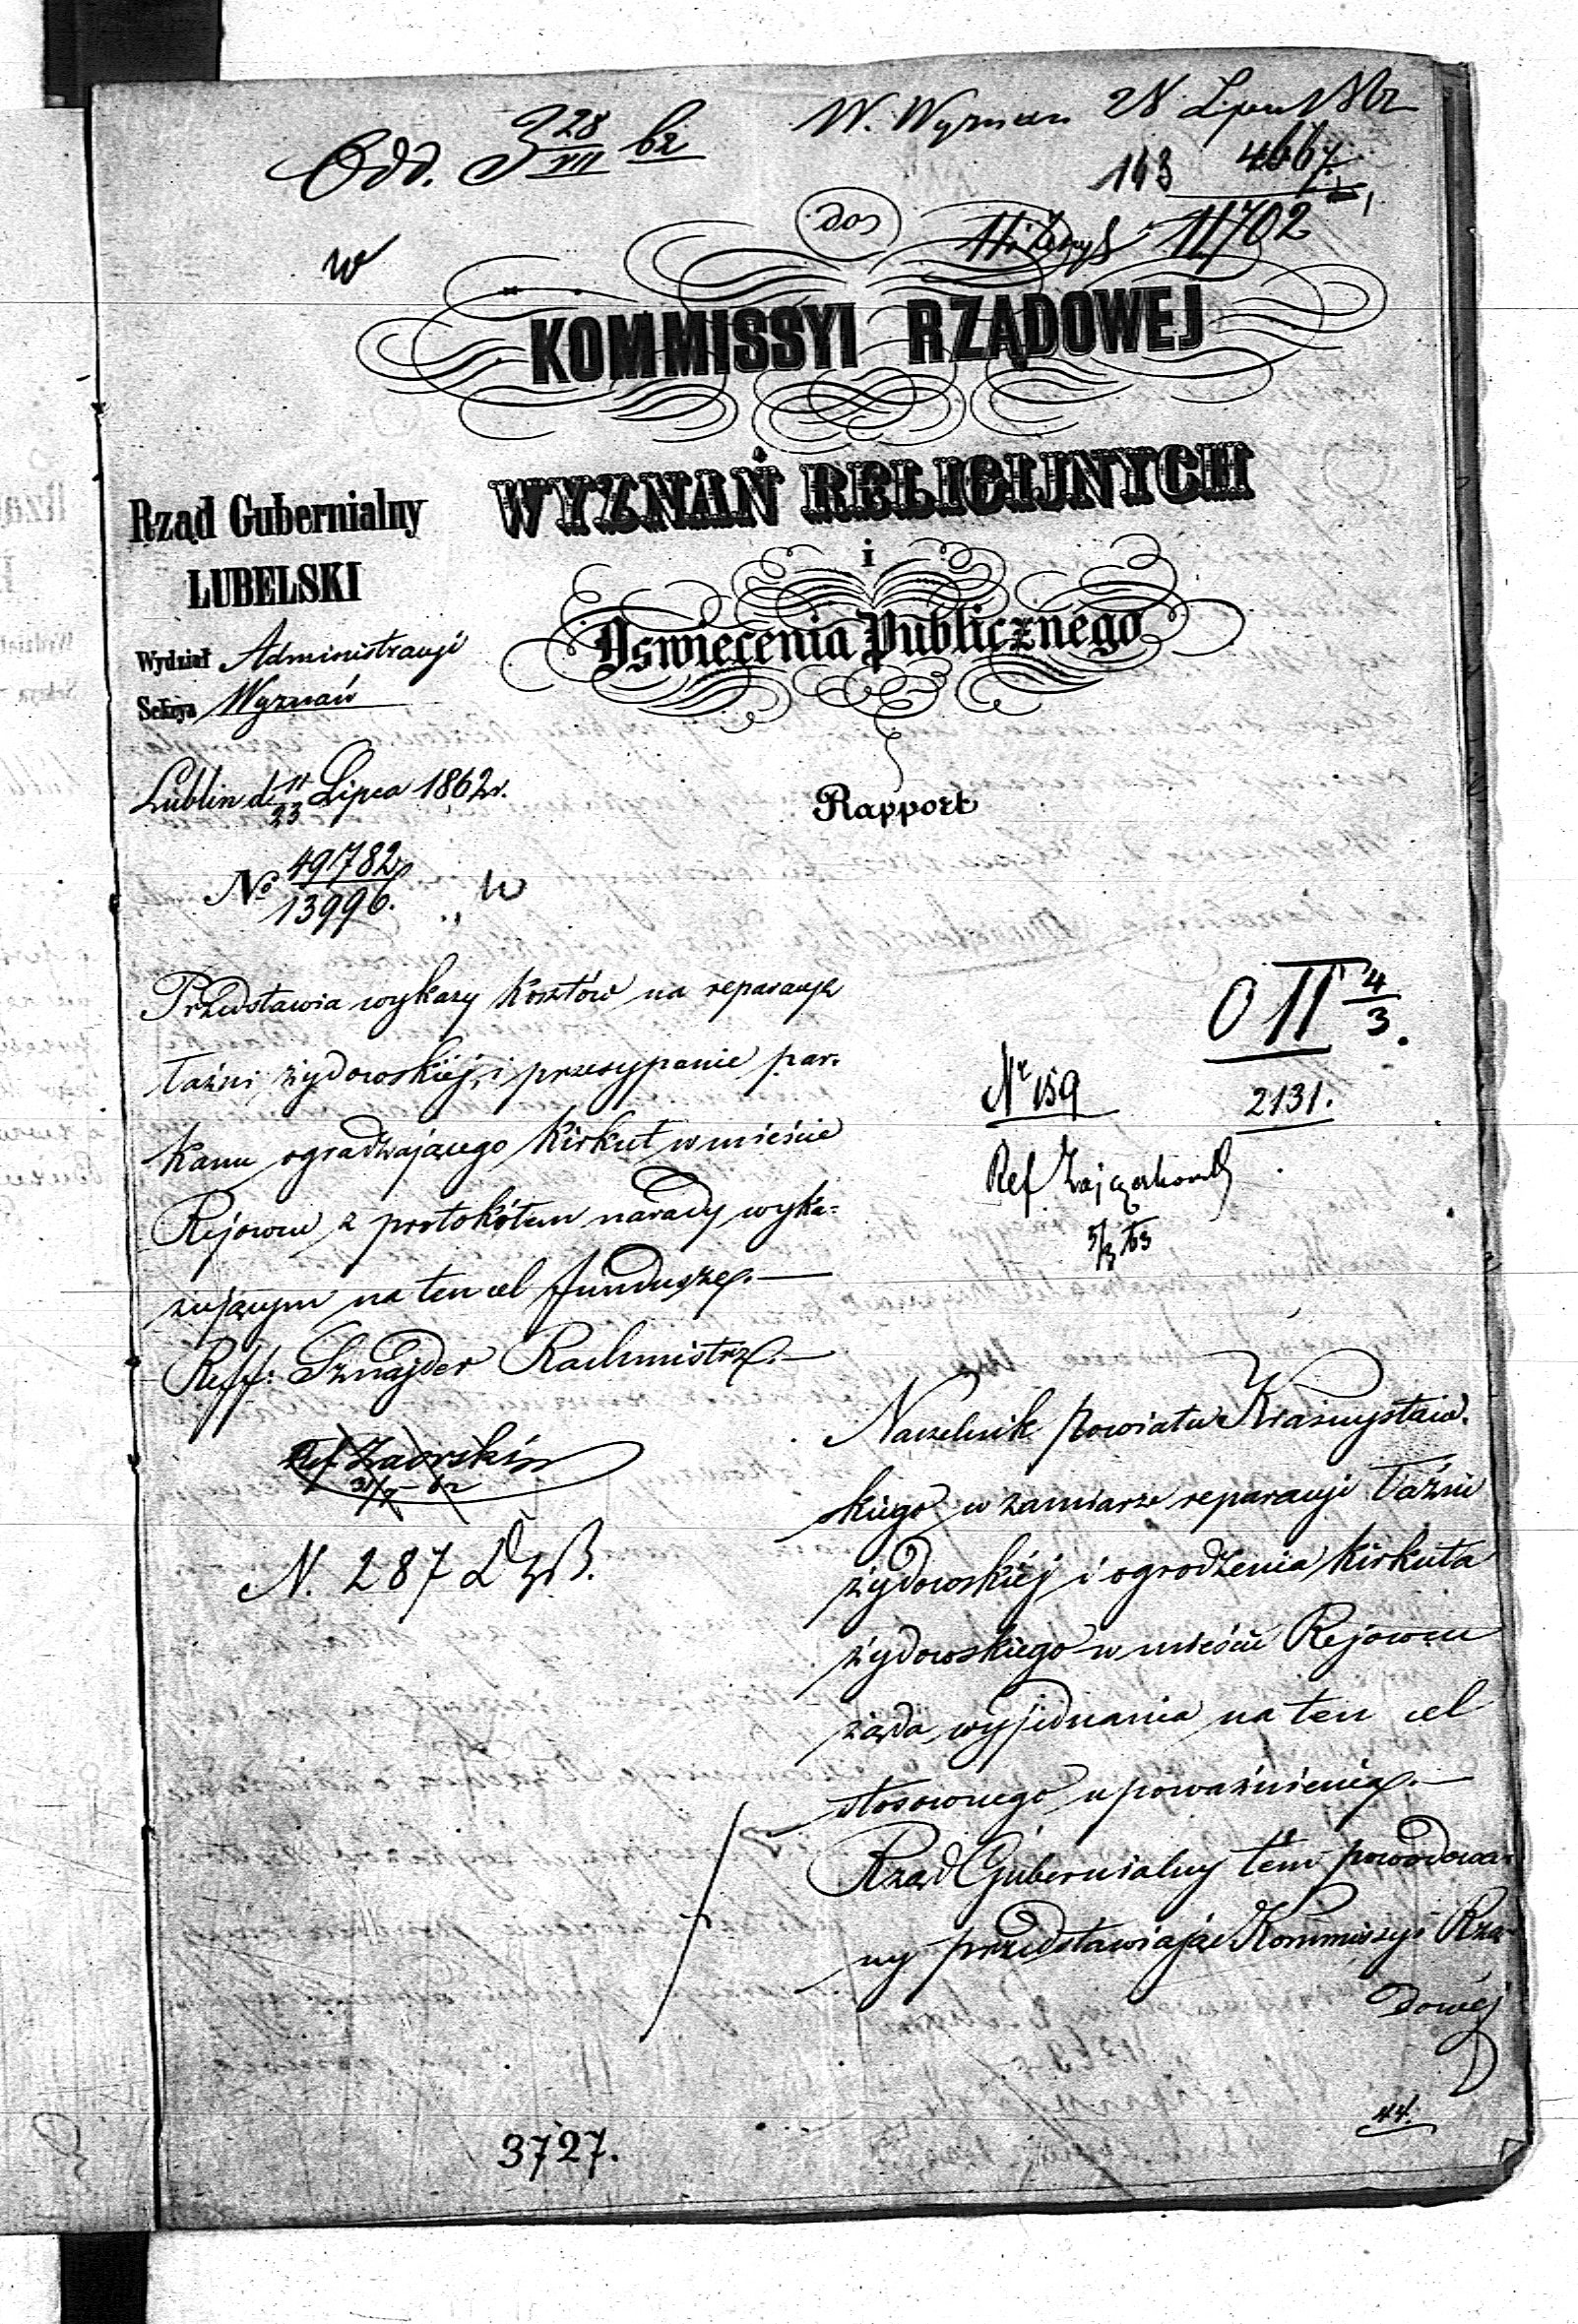 Odd. 3 28/VII 62
W. Wyznań 28 Lipca 1862
193 4667
11702
w
do
KOMMISSYI RZĄDOWEJ
WYZNAŃ RELIGIJNYCH
i
Oswiecenia Publicznego
Rapport
Rząd Gubernialny
LUBELSKI
Wydział Administracyi
Sekcya Wyznań
Lublin d. 11/23 Lipca 1862 r.
No 49782/13996.
Przedstawia wykazy kosztów na reparacyę
łaźni żydowskiéj, i przesypanie par-
kanu ogradzającego Kirkut w mieście
Rejowcu z protokółem narady wyka-
zującym na ten cel fundusze.—
Reff: Sznajder Rachmistrz.—
Ref. Zaorski
31/7 – 62
N. 287
O II 4/3.
Nr 159
2131.
Ref Zajączkowski
5/3 63
Naczelnik Powiatu Krasnystaw-
skiego w zamiarze reparacyi łaźni
żydowskiéj i ogrodzenia kirkuta
żydowskiego w mieście Rejowcu
żąda wyjednania na ten cel
stosownego upoważnienia.—
Rząd Gubernialny tém powodowa-
ny przedstawiając Kommissyi Rzą-
dowéj
44.
3727.